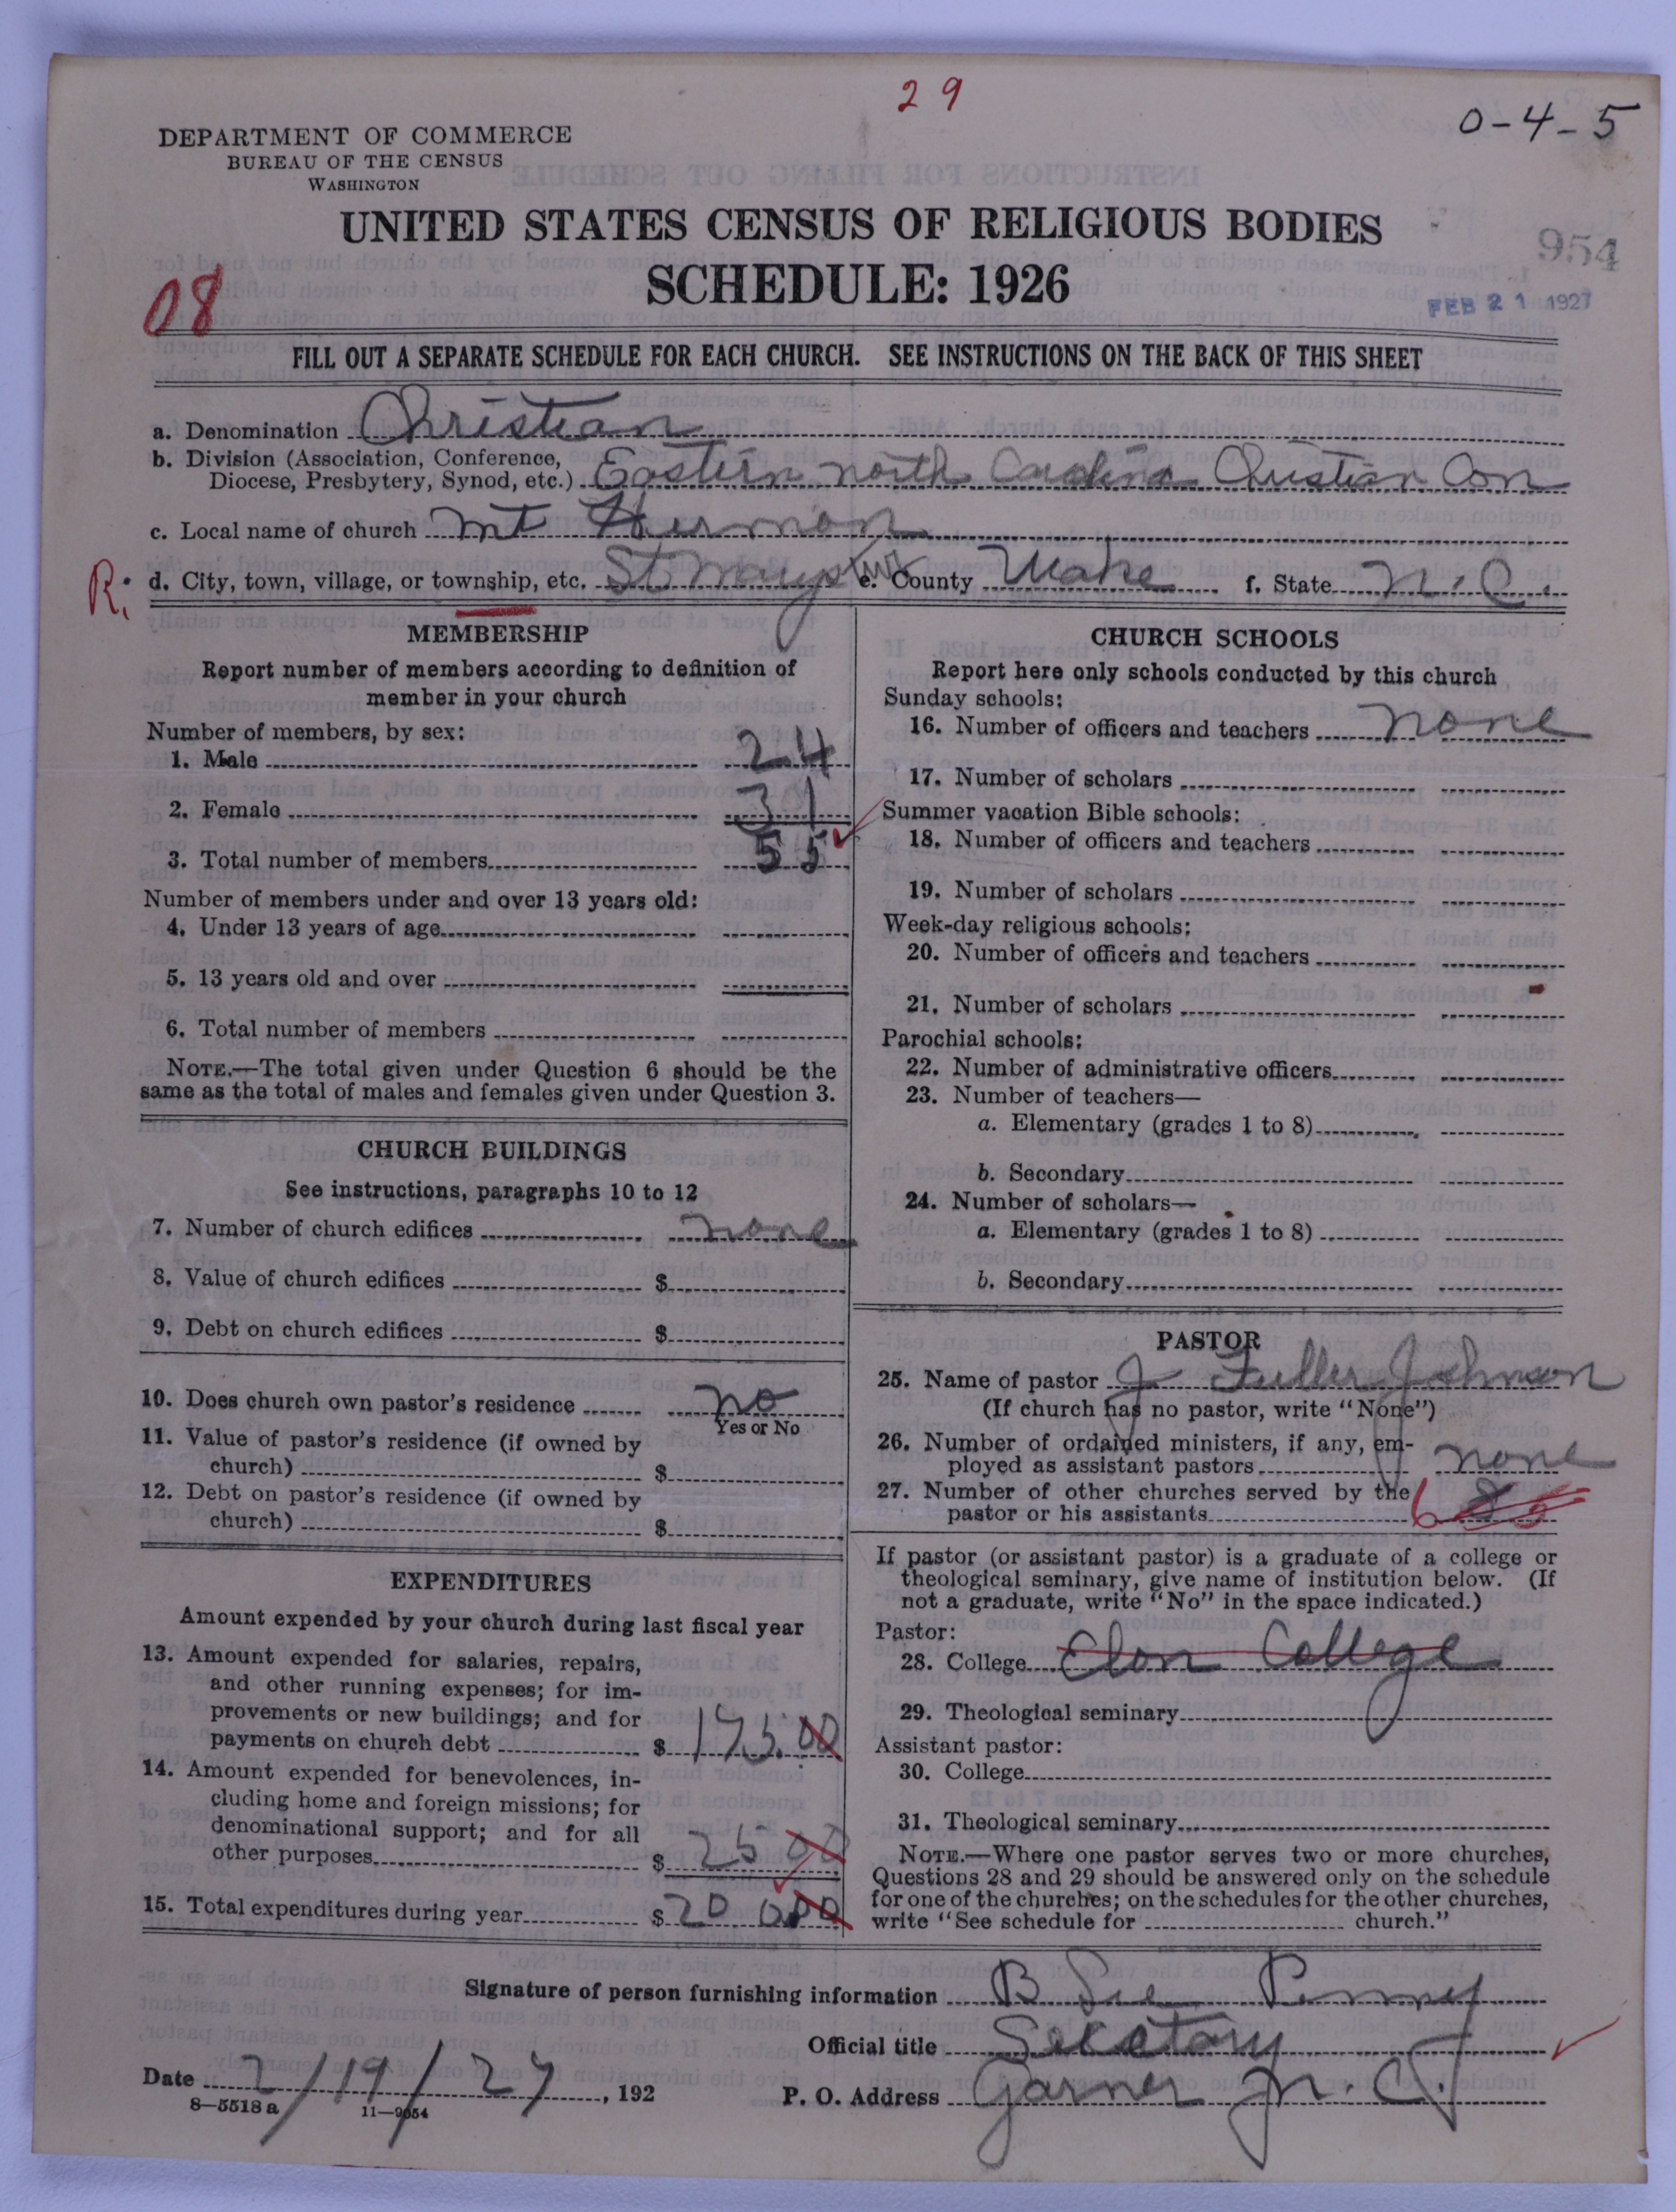 29
0-4-5
DEPARTMENT OF COMMERCE
BUREAU OF THE CENSUS
WASHINGTON
UNITED STATES CENSUS OF RELIGIOUS BODIES
SCHEDULE: 1926
954
FEB 21 1927
08
FILL OUT A SEPARATE SCHEDULE FOR EACH CHURCH. SEE INSTRUCTIONS ON THE BACK OF THIS SHEET
a. Denomination Christian
b. Division (Association, Conference,
Diocese, Presbytery, Synod, etc.) Eastern North Carolina Christian Con
c. Local name of church Mt Hermon
R. d. City, town, village, or township, etc. St Marys e. County Wake f. State N.C.
MEMBERSHIP
Report number of members according to definition of
member in your church
Number of members, by sex:
1. Male 24
2. Female 31
3. Total number of members 55
Number of members under and over 13 years old:
4. Under 13 years of age
5. 13 years old and over
6. Total number of members
NOTE.—The total given under Question 6 should be the
same as the total of males and females given under Question 3.
CHURCH BUILDINGS
See instructions, paragraphs 10 to 12
7. Number of church edifices none
8. Value of church edifices $
9. Debt on church edifices $
10. Does church own pastor's residence no
Yes or No
11. Value of pastor's residence (if owned by
church) $
12. Debt on pastor's residence (if owned by
church) $
EXPENDITURES
Amount expended by your church during last fiscal year
13. Amount expended for salaries, repairs,
and other running expenses; for im-
provements or new buildings; and for
payments on church debt $ 175.00
14. Amount expended for benevolences, in-
cluding home and foreign missions; for
denominational support; and for all
other purposes $ 25 00
15. Total expenditures during year $ 200.00
CHURCH SCHOOLS
Report here only schools conducted by this church
Sunday schools:
16. Number of officers and teachers none
17. Number of scholars
Summer vacation Bible schools:
18. Number of officers and teachers
19. Number of scholars
Week-day religious schools:
20. Number of officers and teachers
21. Number of scholars
Parochial schools:
22. Number of administrative officers
23. Number of teachers—
a. Elementary (grades 1 to 8)
b. Secondary
24. Number of scholars—
a. Elementary (grades 1 to 8)
b. Secondary
PASTOR
25. Name of pastor J Fuller Johnson
(If church has no pastor, write "None")
26. Number of ordained ministers, if any, em-
ployed as assistant pastors none
27. Number of other churches served by the
pastor or his assistants 6
If pastor (or assistant pastor) is a graduate of a college or
theological seminary, give name of institution below. (If
not a graduate, write "No" in the space indicated.)
Pastor:
28. College Elon College
29. Theological seminary
Assistant pastor:
30. College
31. Theological seminary
NOTE.—Where one pastor serves two or more churches,
Questions 28 and 29 should be answered only on the schedule
for one of the churches; on the schedules for the other churches,
write "See schedule for church."
Signature of person furnishing information B Lee Penny
Official title Secetary
Date 2/19/27, 192
P. O. Address Garner N.C.
8—5518 a 11—9054